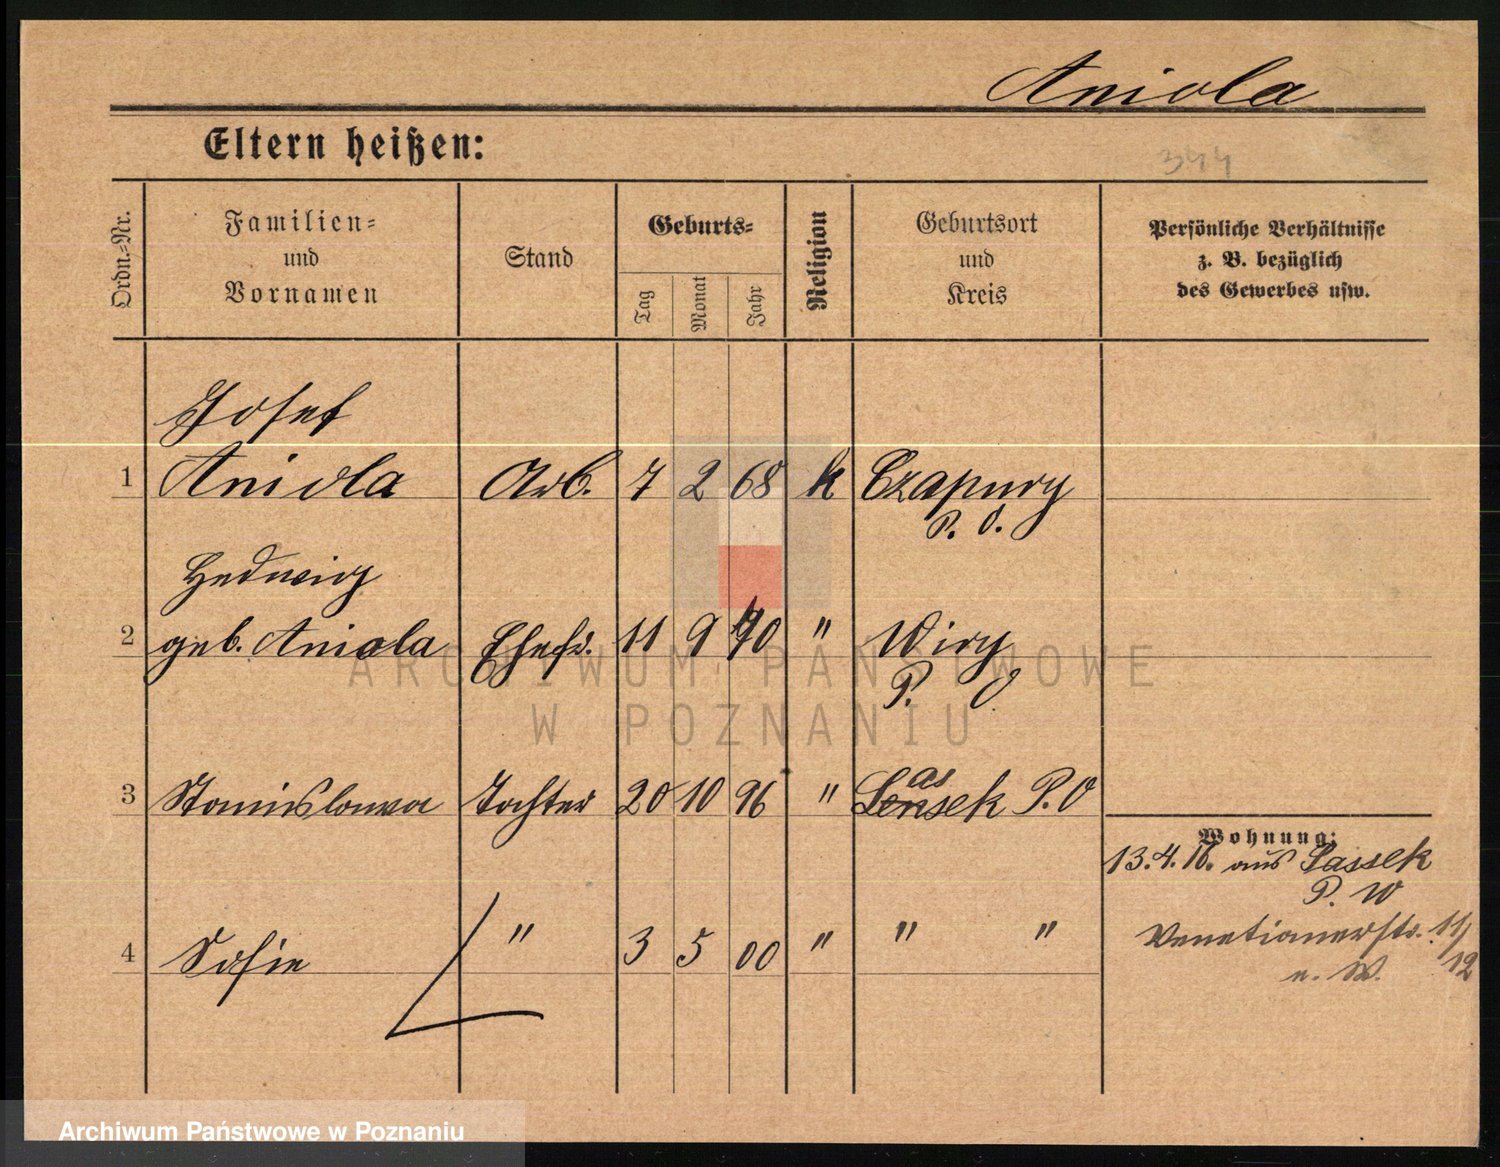 Aniola
Eltern heißen:
344
Ordn.-Nr.
Familien-
und
Vornamen
Stand
Geburts-
Tag
Monat
Jahr
Religion
Geburtsort
und
Kreis
Persönliche Verhältnisse
z. B. bezüglich
des Gewerbes usw.
Josef
1 Aniola Arb. 7 2 68 k Czapury
P. O.
Hedwig
2 geb. Aniola Ehefr. 11 9 70 " Wiry
P. O
as
3 Stanislawa Tochter 20 10 96 " Lensek P. O
Wohnung:
13. 4. 16. aus Lassek
P. W
4 Sofie " 3 5 00 " " "
Venetianerstr. 11/
12
ARCHIWUM PAŃSTWOWE
W POZNANIU
Archiwum Państwowe w Poznaniu